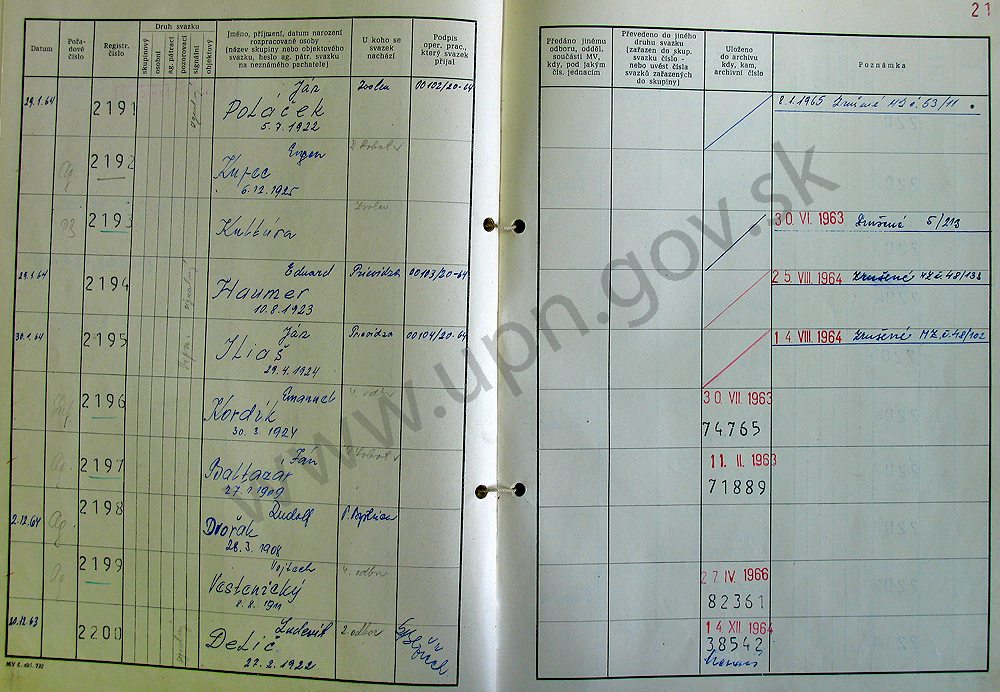 21
Datum
Pořadové číslo
Registr. číslo
Druh svazku
skupinový
osobní
ag. pátrací
pozorovací
signální
objektový
Jméno, příjmení, datum narození
rozpracované osoby
(název skupiny nebo objektového
svazku, heslo ag. pátr. svazku
na neznámého pachatele)
U koho se
svazek
nachází
Podpis
oper. prac.,
který svazek
přijal
Předáno jinému
odboru, odděl.
součásti MV,
kdy, pod jakým
čís. jednacím
Převedeno do jiného
druhu svazku
(zařazen do skup.
svazku číslo -
nebo uvést čísla
svazků zařazených
do skupiny)
Uloženo
do archivu
kdy, kam,
archivní číslo
Poznámka
29.1.64 2191 Ján Zvolen 00102/20-64
Poláček
5.7.1922
8.1.1965
2192
Kupec
6.12.1925
2193 Kultúra Zvolen
30. VI. 1963 Zrušené 5/213
29.1.64 2194 Eduard Prievidza 00103/20-64
Haumer
10.8.1923
25. VIII. 1964 Zrušené
30.1.64 2195 Ján Prievidza 00104/20-64
Iliaš
29.4.1924
14. VIII. 1964 Zrušené MZ č. 48/102
2196 Emanuel
Kordík
30.3.1924
30. VII. 1963
74765
2197 Ján
Baltazar
11. II. 1963
71889
2.12.64 2198 Rudolf
Dvořák
28.3.1908
2199 Vojtech
Vestenický
8.8.1911
27 IV. 1966
82361
20.12.63 2200 Ľudevít 2. odbor
Delič
22.2.1922
14 XII. 1964
38542
www.upn.gov.sk